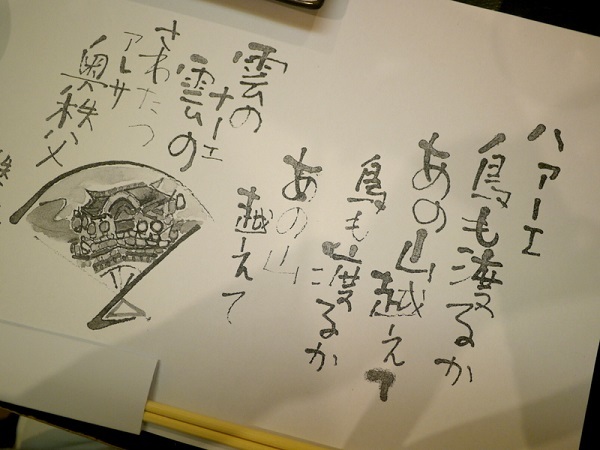 ハァーエ
鳥も渡るか
あの山越えて
鳥も渡るか
あの山
越えて
雲のナーエ
雲の
さわたつ
アレサ
奥秩父